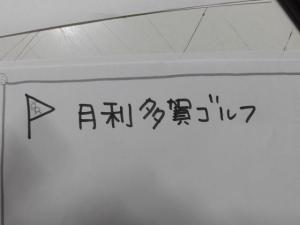 月利多賀ゴルフ